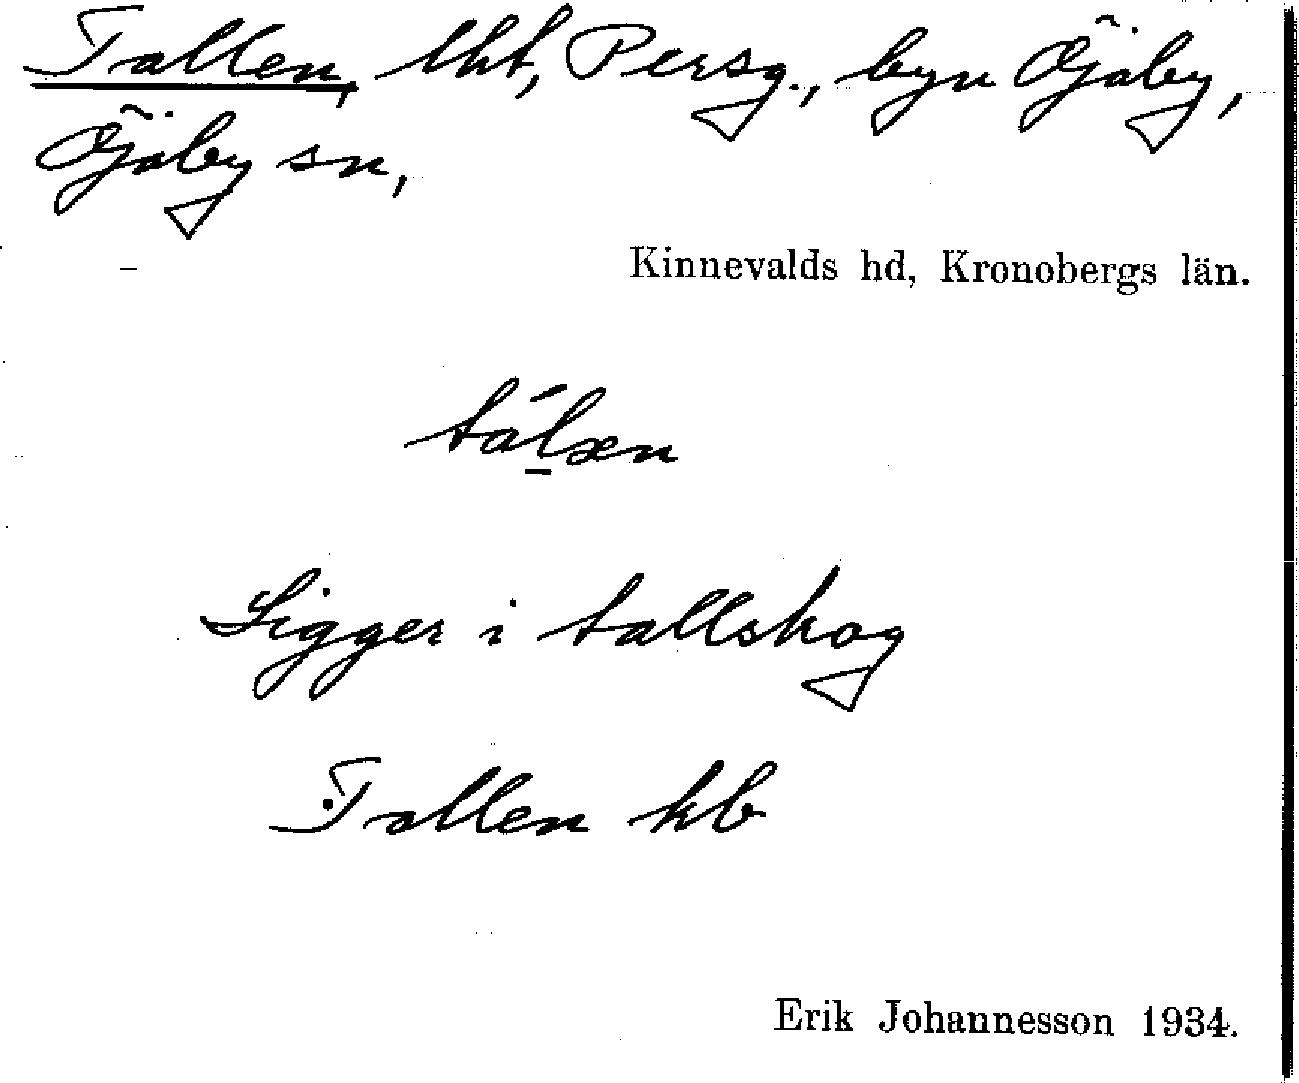 Tallen, lht, Persg., byn Öjaby,
Öjaby sn,
Kinnevalds hd, Kronobergs län.
Ligger i tallskog
Tallen kb
Erik Johannesson 1934.